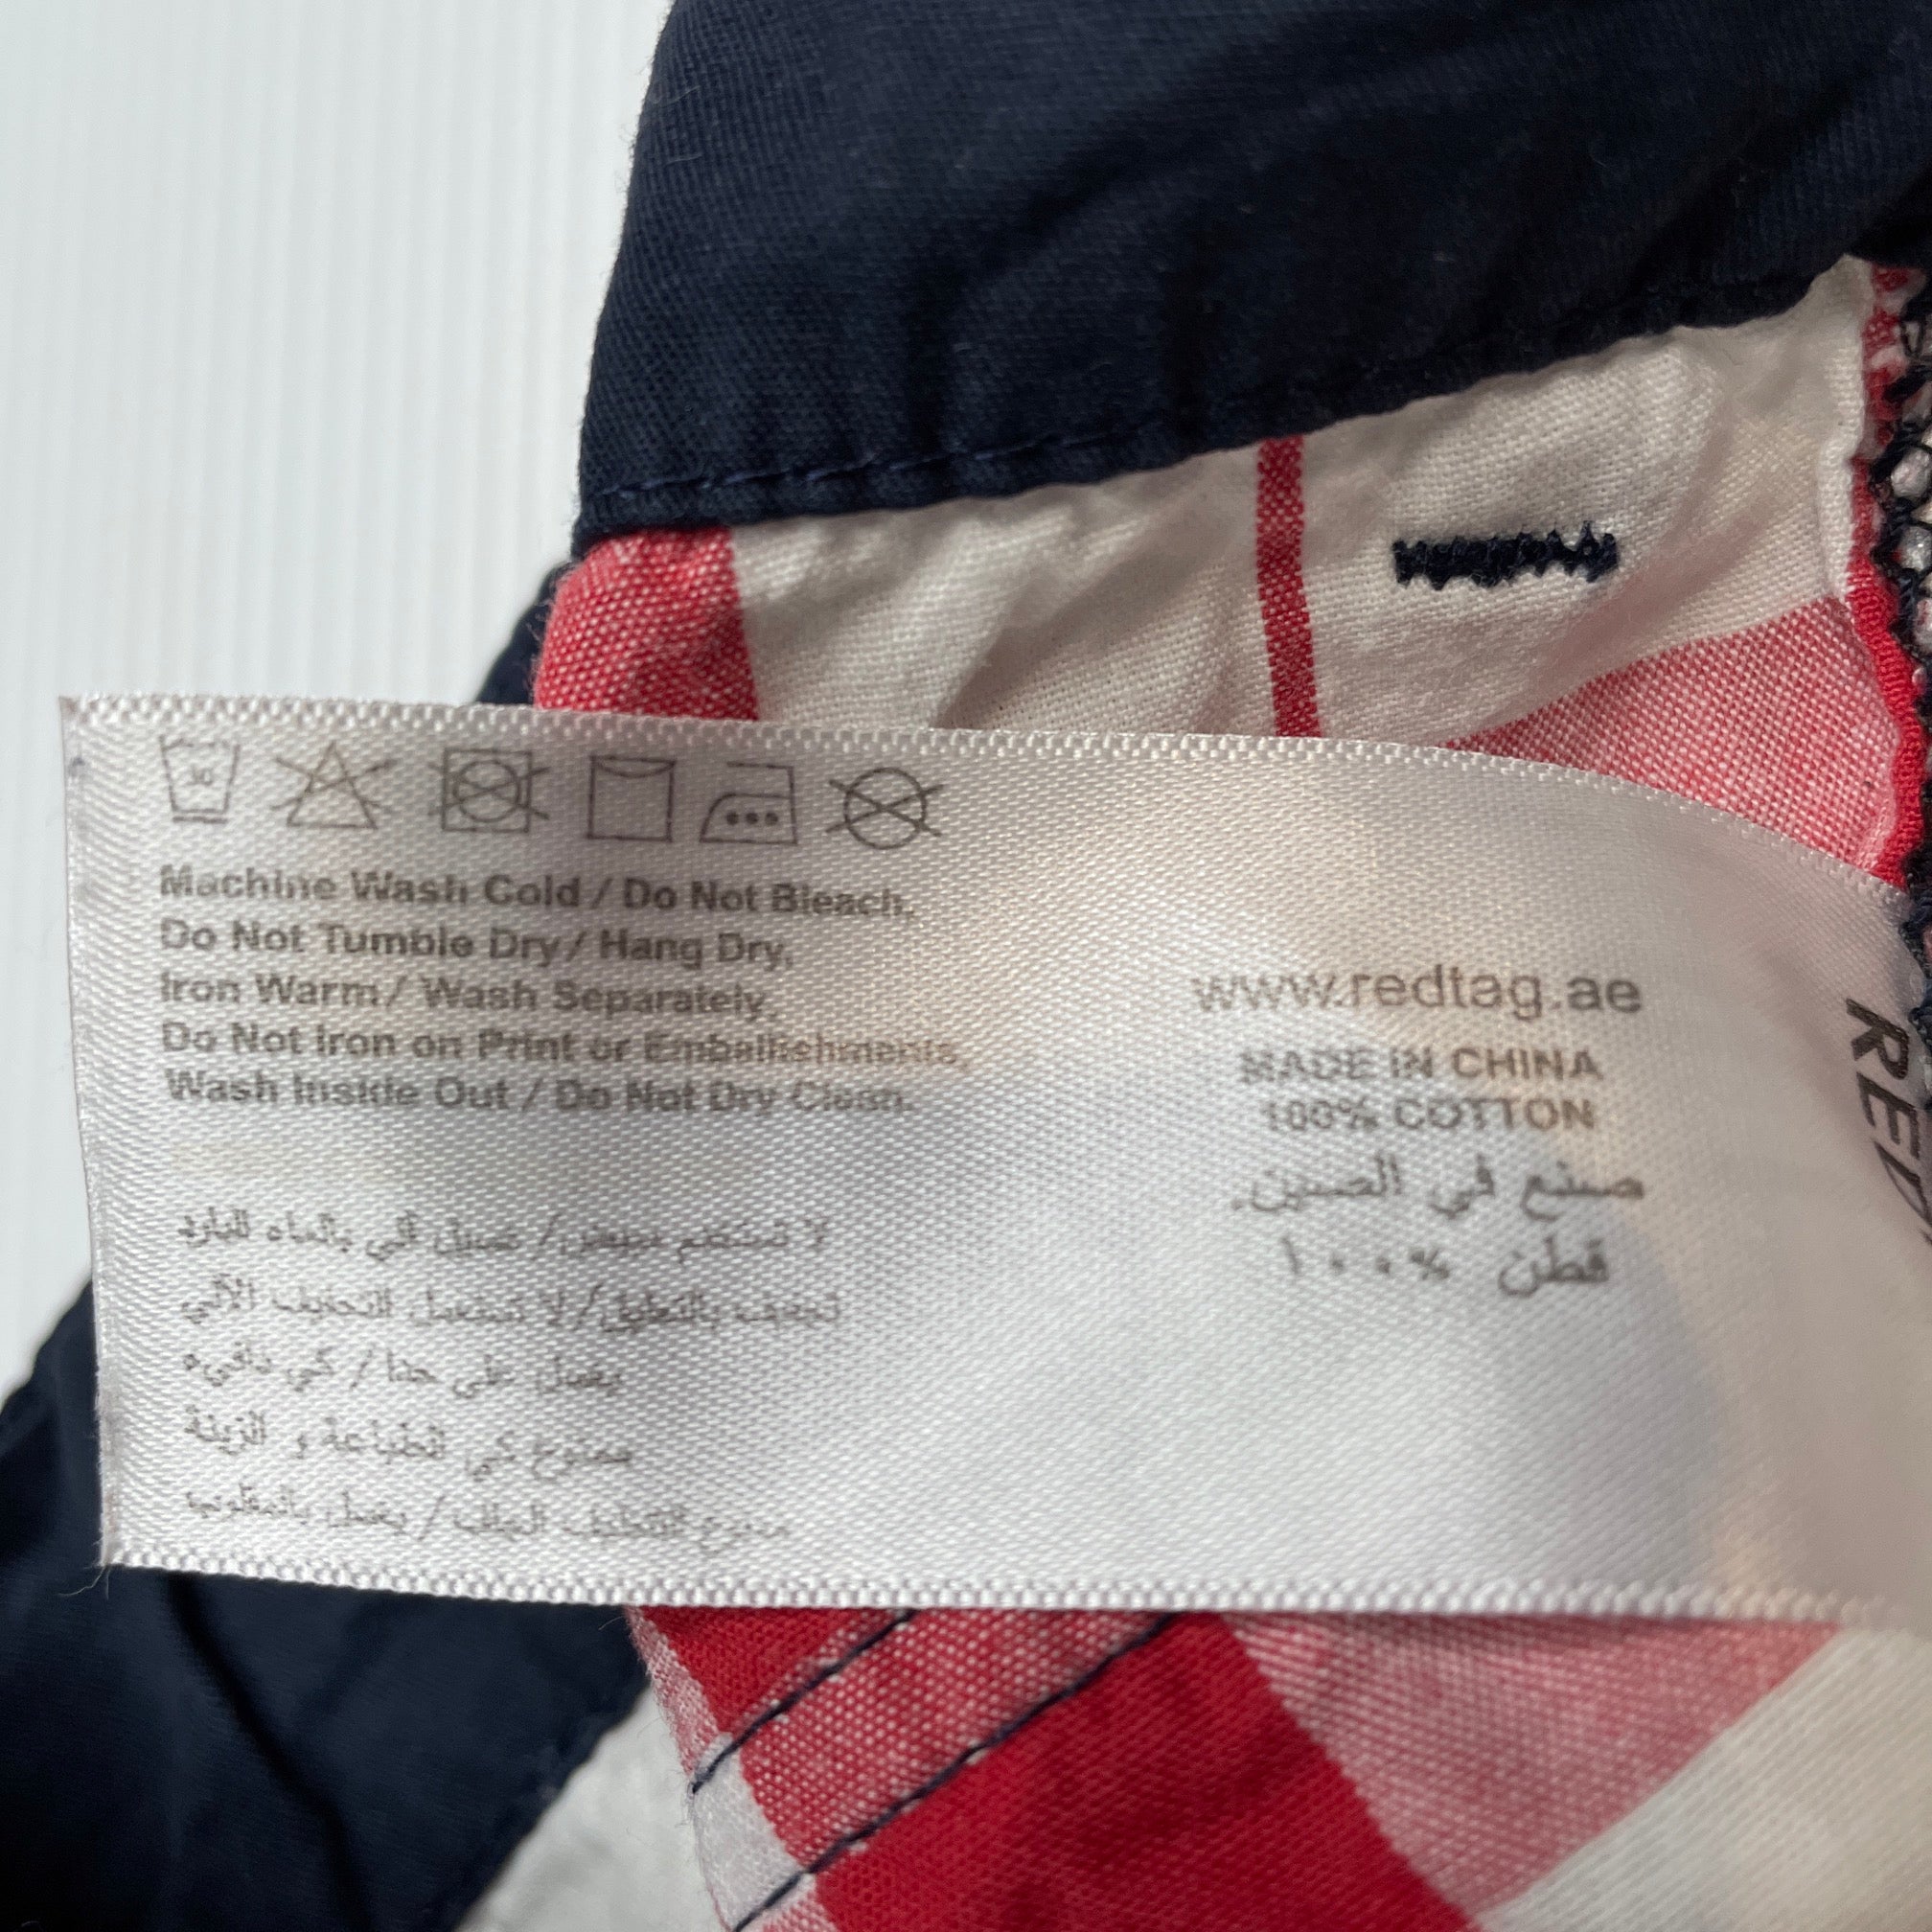 30
Machine Wash Cold / Do Not Bleach.
Do Not Tumble Dry / Hang Dry.
Iron Warm / Wash Separately.
Do Not Iron on Print or Embellishments.
Wash Inside Out / Do Not Dry Clean.
لا تستخدم مبيض / غسيل آلي بالماء البارد
تجفيف بالتعليق / لا تستعمل التجفيف الآلي
يغسل على حدا / كي دافيء
ممنوع كي الطباعة و الزينة
ممنوع التنظيف الجاف / يغسل بالمقلوب
www.redtag.ae
MADE IN CHINA
100% COTTON
صنع في الصين.
قطن %١٠٠